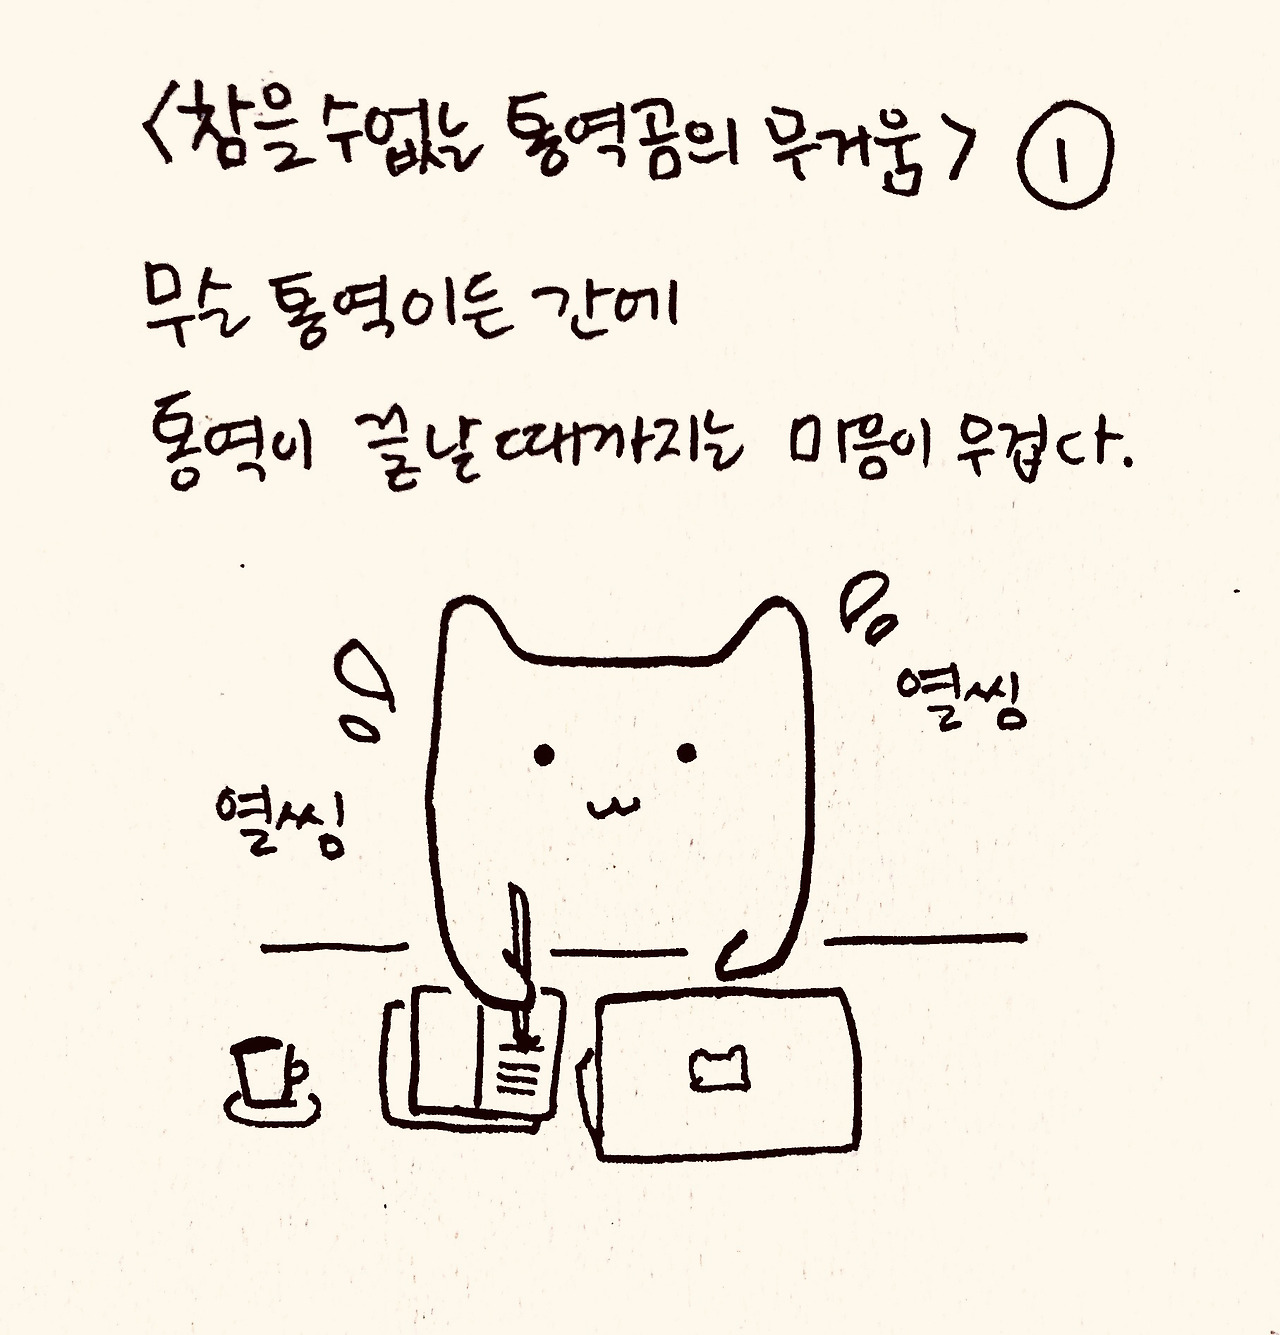 <참을 수 없는 통역곰의 무거움> ①
무슨 통역이든 간에
통역이 끝날 때까지는 마음이 무겁다.
열씸
열씸